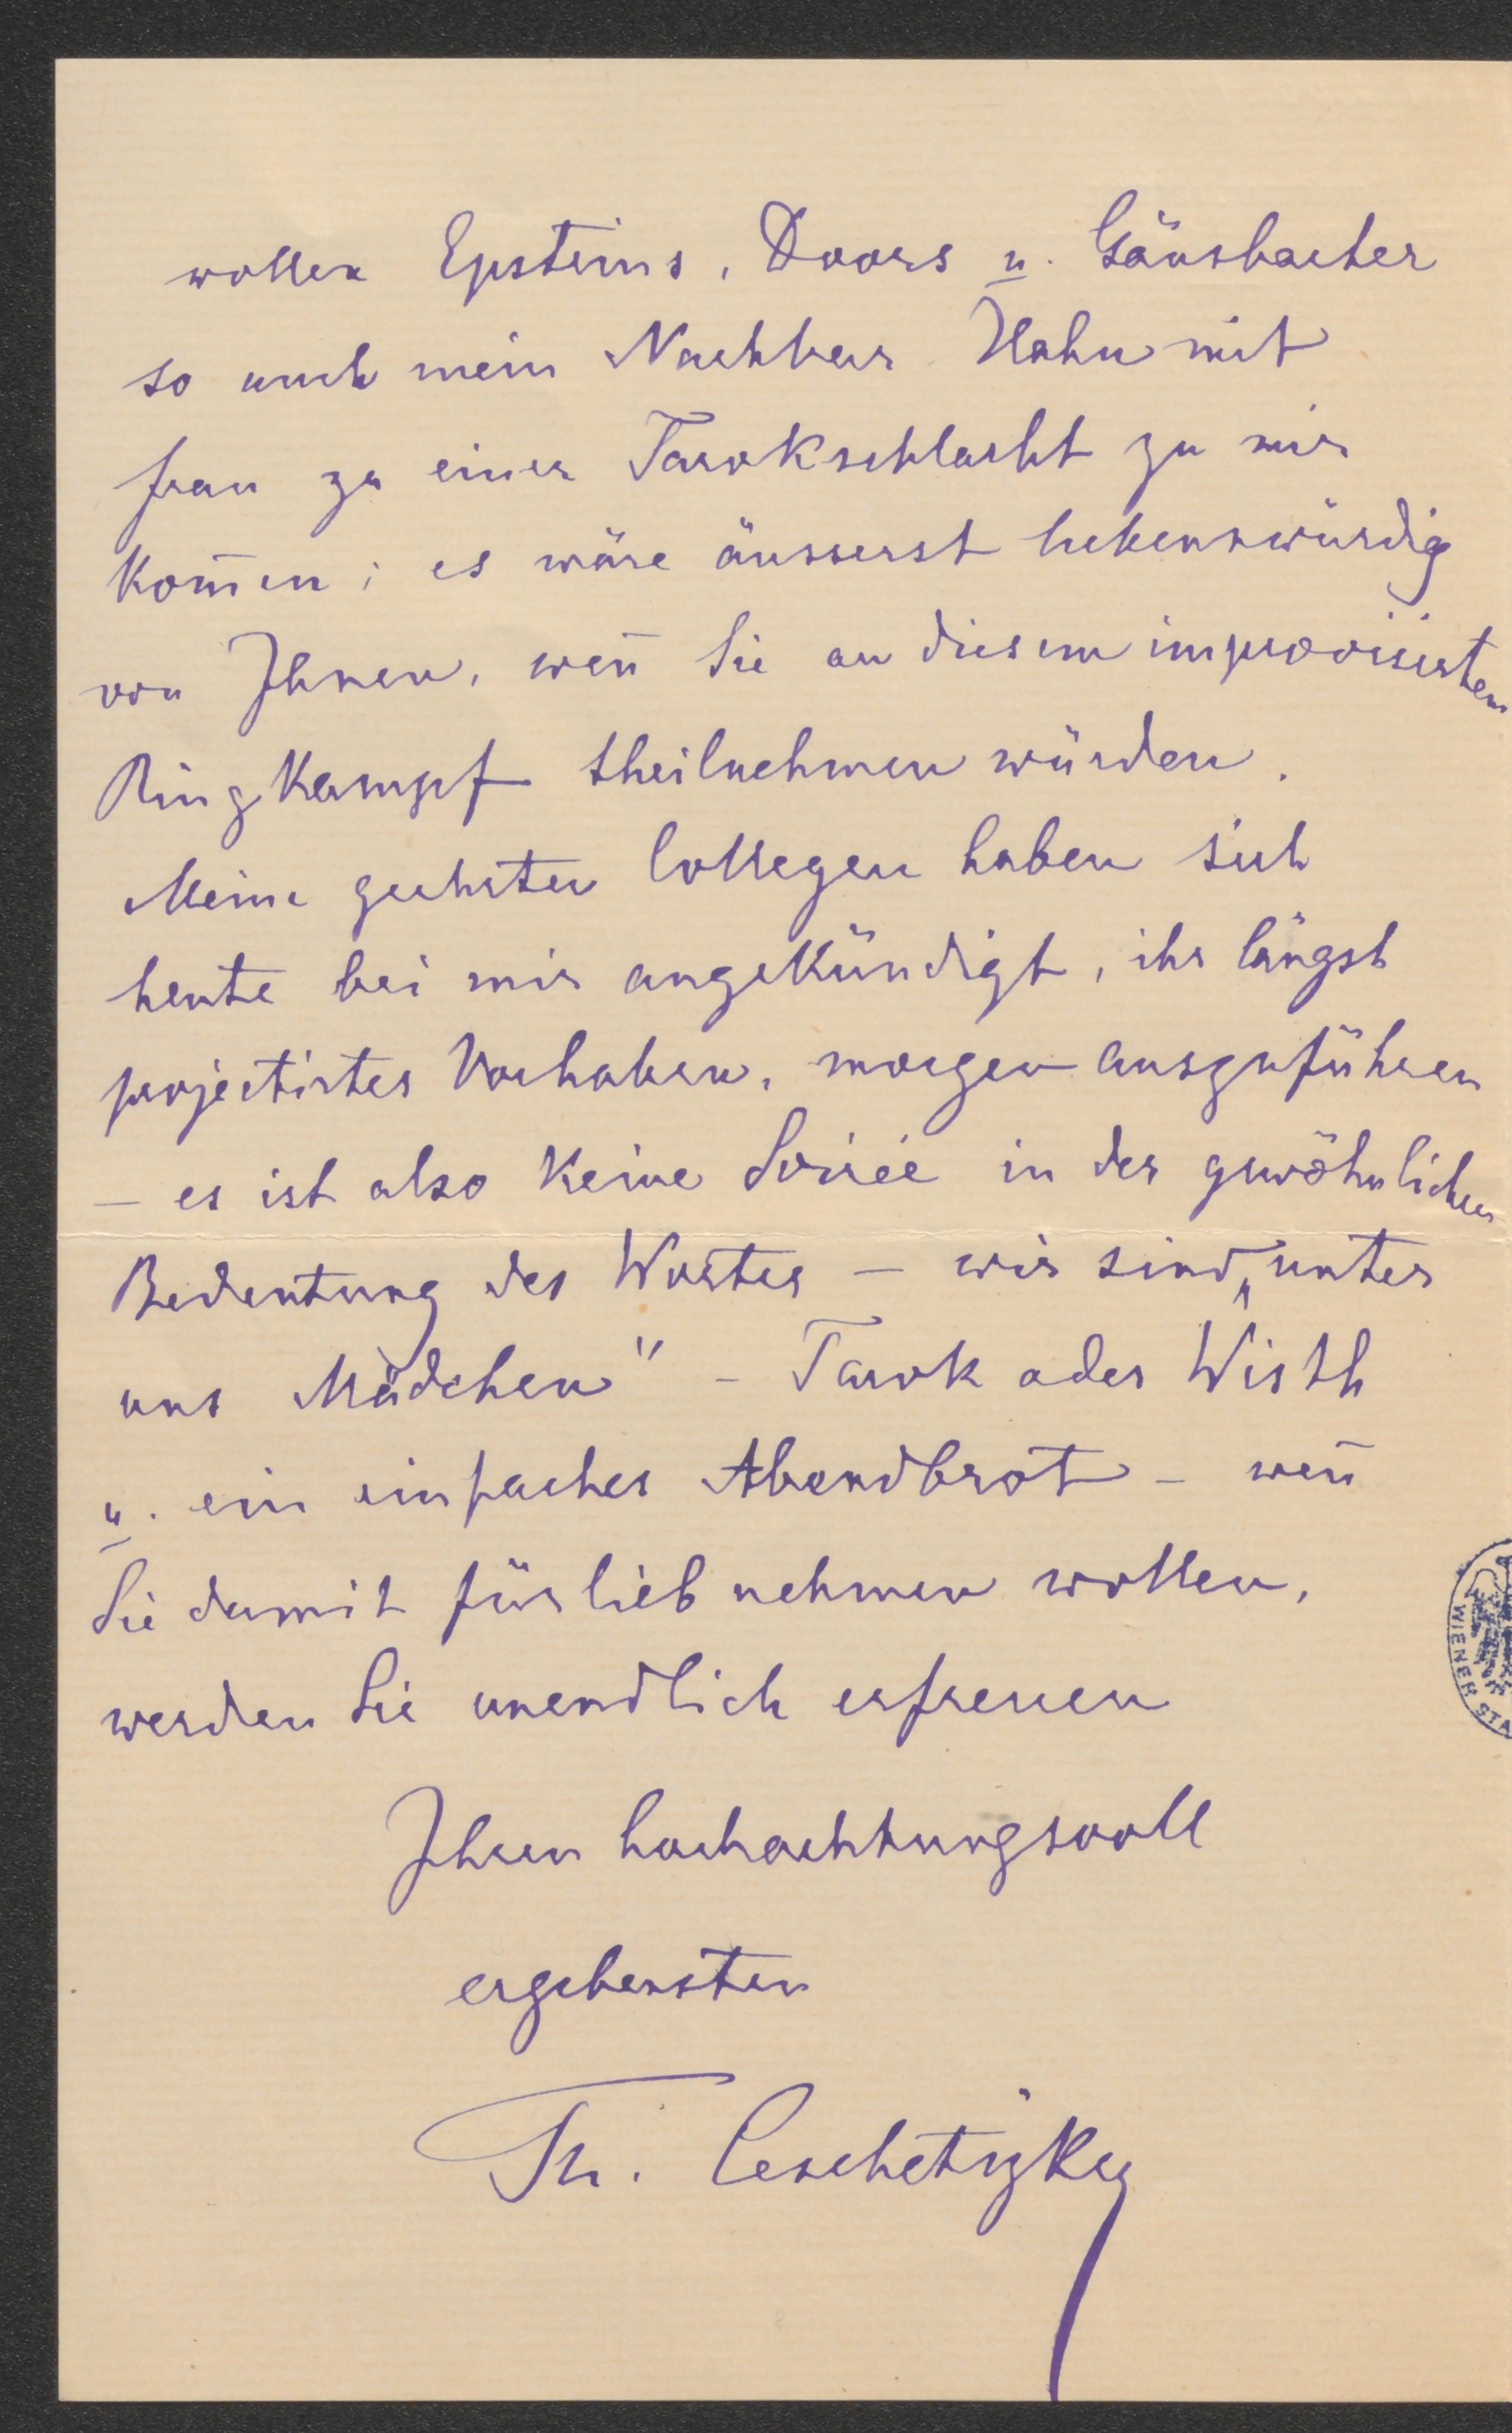 wollen Epsteins, Doors u. Gänsbacher
so auch mein Nachbar Hahn mit
frau zu einer Tarokschlacht zu mir
kom̅en; es wäre äusserst liebenswürdig
von Ihnen, wen̅ Sie an diesem improvisirten
Ringkampf theilnehmen würden.
Meine geehrten Collegen haben sich
heute bei mir angekündigt, ihr längst
projectirtes Vorhaben, morgen auszuführen
– es ist also keine Soirée in der gewöhnlichen
Bedeutung des Wortes – wir sind „unter
uns Mädchen" – Tarok oder Wisth
u. ein einfaches Abendbrot – wen̅
Sie damit fürlieb nehmen wollen,
werden Sie unendlich erfreuen
Ihren hochachtungsvoll
ergebensten
Th. Leschetizky
WIENER STA